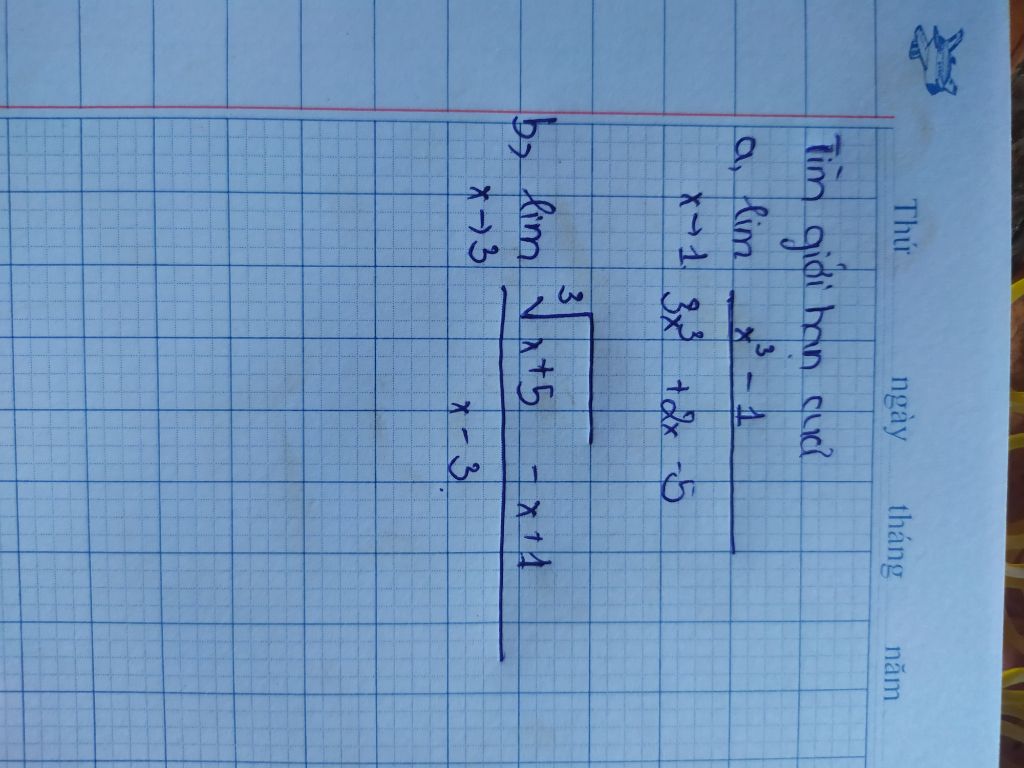 Thứ ngày tháng năm
Tìm giới hạn của
a, lim x³ - 1
x→1 3x³ + 2x - 5
b, lim ∛x+5 - x + 1
x→3 x - 3